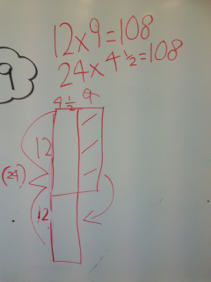 12x9=108
24x4½=108
9
4½ 9
12
(24)
12